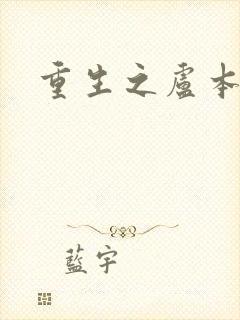 重生之盧本
藍宇